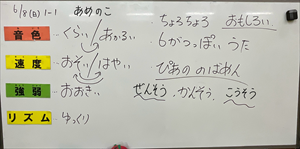 6/8(日) 1-1 あめのこ
音色 くらい/あかるい
速度 おそい/はやい
強弱 おおきい
リズム ゆっくり
ちょろちょろ おもしろい
6がつっぽい うた
ぴあの のばめん
ぜんそう、かんそう、こうそう